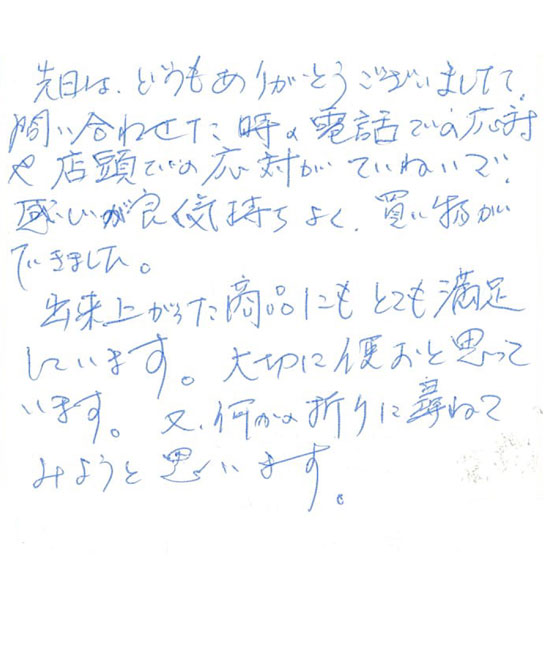 先日は、どうもありがとうございました。
問い合わせた時の電話での応対
や店頭での応対がていねいで、
感じが良く気持ちよく、買い物が
できました。
出来上がった商品にもとても満足
しています。大切に使おと思って
います。又、何かの折りに尋ねて
みようと思います。